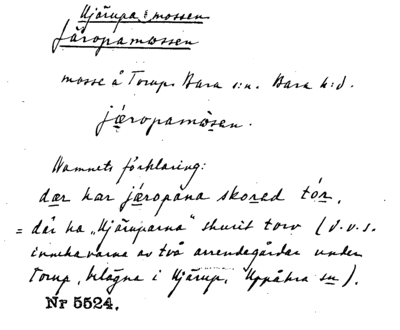 Hjärupa mossen
Järopamossen
mosse å Torup, Bara s:n. Bara h:d.
jæropamọsen.
Namnets förklaring:
dær har jæropana skorad tór,
= där ha "Hjäruparna" skurit torv (d.v.s.
innehavarna av två arrendegårdar under
Torup, belägna i Hjärup, Uppåkra sn).
Nr 5524.